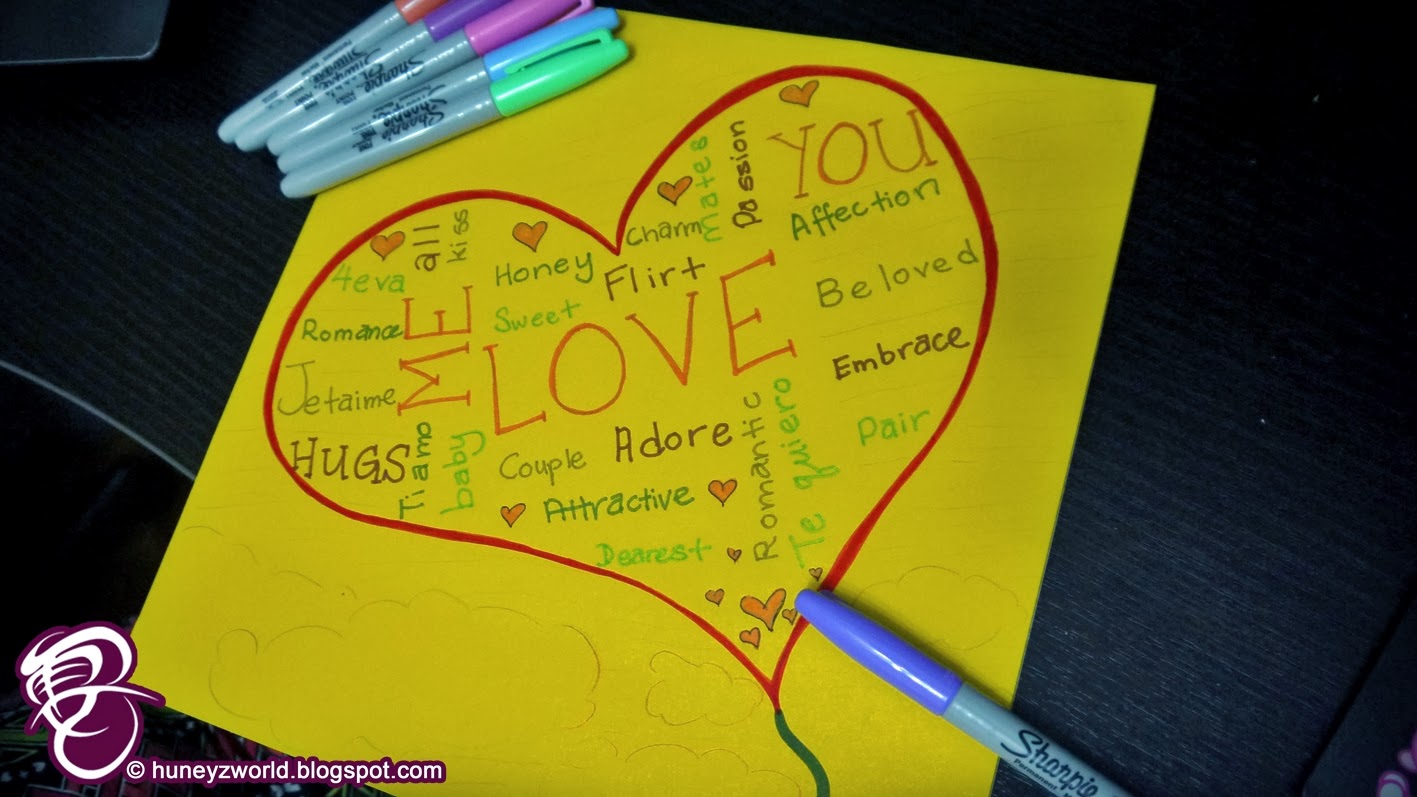 YOU
mates
Passion
Charm
Affection
all
kiss
Honey
Flirt
4eva
Sweet
Beloved
Romance
ME
LOVE
Embrace
Jetaime
HUGS
Ti amo
baby
Couple
Adore
Romantic
Te quiero
Pair
Attractive
Dearest
Sharpie
Sharpie
Sharpie
Permanent
© huneyzworld.blogspot.com